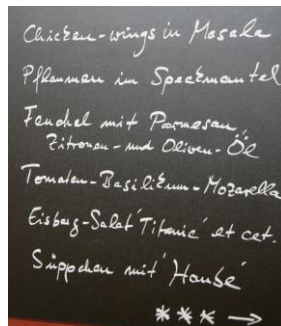 Chicken-wings in Masala
Pflaumen im Speckmantel
Fenchel mit Parmesan
Zitronen- und Oliven-Öl
Tomaten-Basilikum-Mozarella
Eisberg-Salat 'Titanic' et cet.
Süppchen mit 'Haube'
*** →